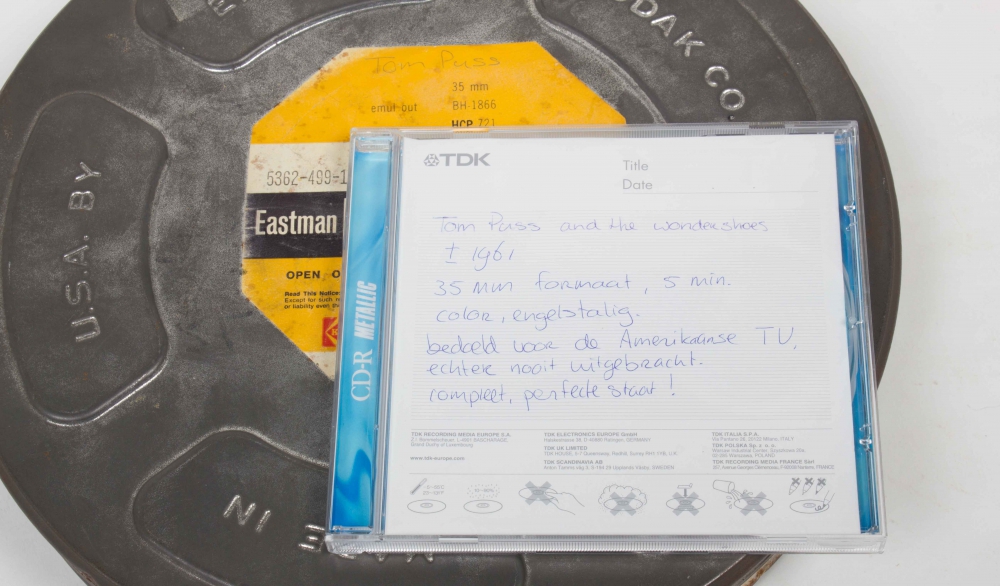 KODAK CO.
U.S.A. BY
Tom Puss
35 mm
emul but BH-1866
HCP 721
5362-499-1
Eastman
OPEN O
Read This Notice:
Except for such
or liability even
TDK
Title
Date
Tom Puss and the wondershoes
± 1961
35 mm formaat, 5 min.
color, engelstalig.
bedoeld voor de Amerikaanse TV,
echter nooit uitgebracht.
compleet, perfecte staat!
CD-R METALLIC
TDK RECORDING MEDIA EUROPE S.A.
Grand Duchy of Luxembourg
www.tdk-europe.com
TDK ELECTRONICS EUROPE GmbH
TDK UK LIMITED
TDK SCANDINAVIA AB
TDK ITALIA S.P.A.
TDK POLSKA Sp. z o.o.
TDK RECORDING MEDIA FRANCE Sarl
MADE IN